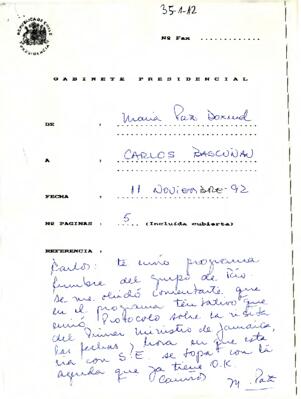 35-1-12
REPUBLICA DE CHILE
PRESIDENCIA
Nº Fax ............
GABINETE PRESIDENCIAL
DE : Maria Paz
A : CARLOS BASCUÑAN
FECHA : 11 NOVIEMBRE-92
Nº PAGINAS : 5 (Incluída cubierta)
REFERENCIA :
Carlos: te envío programa
del grupo de Río.
se me olvidó comentarte que
en el programa tentativo que
envió Protocolo sobre la visita
del Primer Ministro de Jamaica,
las fechas y hora en que
con S.E se topa con la
que ya tiene O.K.
Cariños M. Paz